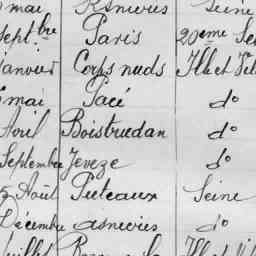 mai Asnieres Seine
Sept.bre Paris 20eme
Janvier Corps nuds Ille et Vil
mai Pacé do
Avril Boistrudan do
Septembre Jeveze do
5 Août Puteaux Seine
Décembre asnieres do
Juillet Ille et Vil